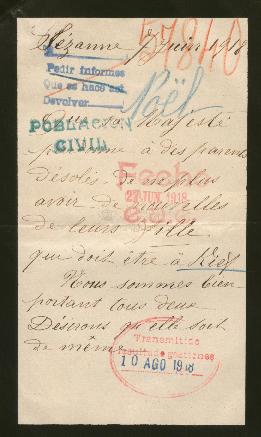 Mézanne 7 Juin 1918
57810
Pedir informes
Que se hace así
Devolver
Noël
Que sa Majesté
POBLACION
CIVIL
pardonne à des parents
désolés de ne plus
Fecha
27 JUN. 1918
avoir de nouvelles
de leurs fille
qui doit être à Kief
Nous sommes bien
portant tous deux
Désirons qu'elle soit
de même
Transmitido
resultado gestiones
10 AGO 1918